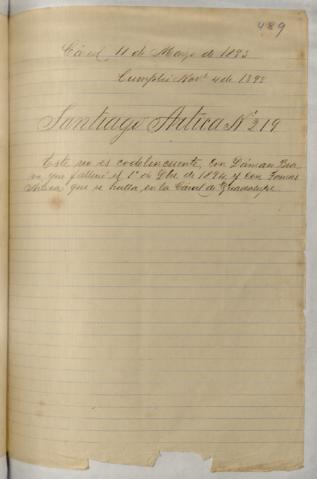 489
Cárcel 11 de Marzo de 1893
Cumplió Nov.e 4 de 1898
Santiago Artica Nº 219
Este reo es codelincuente, con Dámian
que falleció el 1º de Dbe. de 1894 y con Tomas
Artica que se halla en la Cárcel de Guadalupe